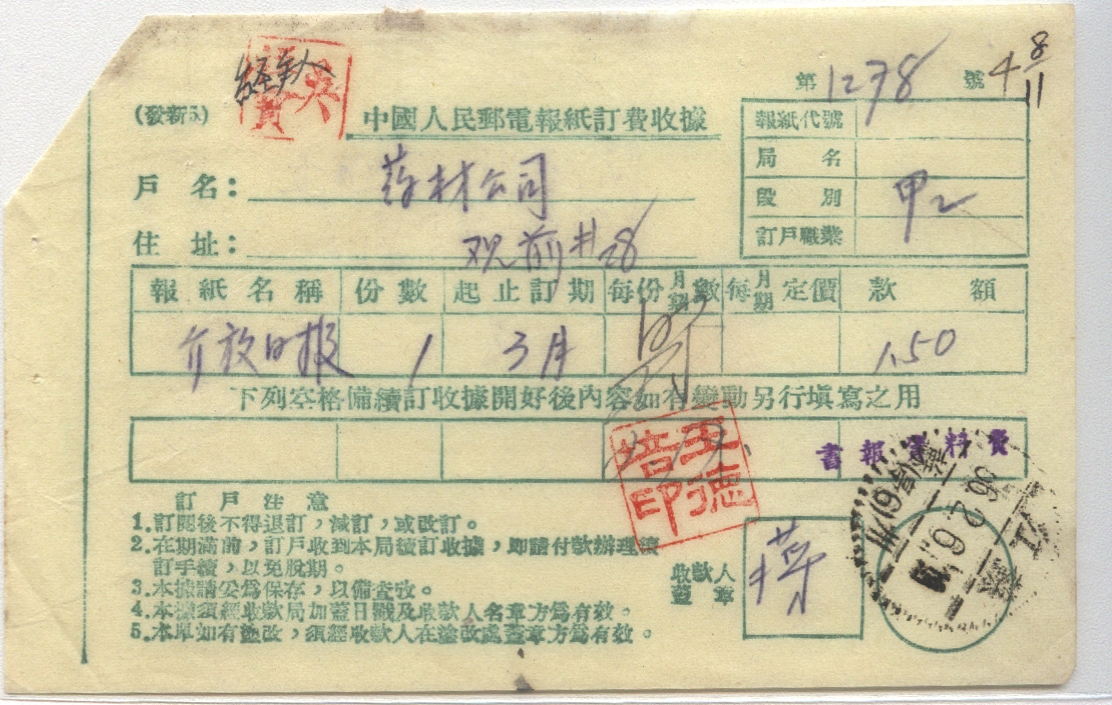 第1278號
4 8/11
經手人
(發新5)
中國人民郵電報紙訂費收據
戶名：药材公司
住址：观前井28
報紙代號
局名
段別 甲2
訂戶職業
報紙名稱 份數 起止訂期 每份月期數 每月期定價 款額
介放日报 1 3月 1.50
下列空格備續訂收據開好後內容如有變動另行填寫之用
王德培印
書報資料費
訂戶注意
1.訂閱後不得退訂，減訂，或改訂。
2.在期滿前，訂戶收到本局續訂收據，即請付款辦理續
訂手續，以免脫期。
3.本據請妥爲保存，以備查攷。
4.本據須經收款局加蓋日戳及收款人名章方爲有效。
5.本單如有塗改，須經收款人在塗改處蓋章方爲有效。
收款人
蓋章